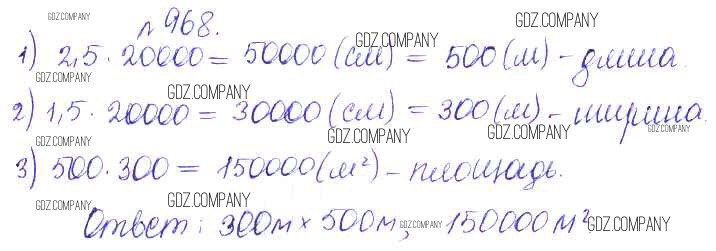 №968.
1) 2,5 · 20000 = 50000 (см) = 500 (м) - длина.
2) 1,5 · 20000 = 30000 (см) = 300 (м) - ширина.
3) 500 · 300 = 150000 (м²) - площадь.
Ответ: 300м × 500м, 150000 м²
GDZ.COMPANY
GDZ.COMPANY
GDZ.COMPANY
GDZ.COMPANY
GDZ.COMPANY
GDZ.COMPANY
GDZ.COMPANY
GDZ.COMPANY
GDZ.COMPANY
GDZ.COMPANY
GDZ.COMPANY
GDZ.COMPANY
GDZ.COMPANY
GDZ.COMPANY